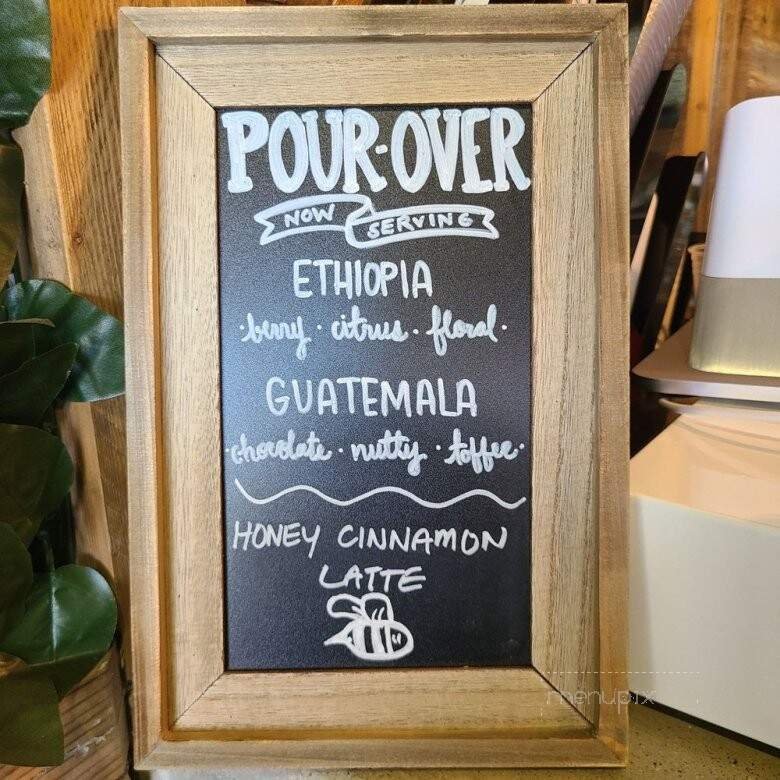 POUR-OVER
NOW SERVING
ETHIOPIA
·berry·citrus·floral·
GUATEMALA
·chocolate·nutty·toffee·
HONEY CINNAMON
LATTE
menupix